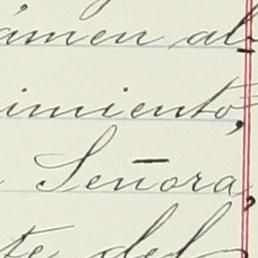 ámen al-
imiento,
Señora,
te del